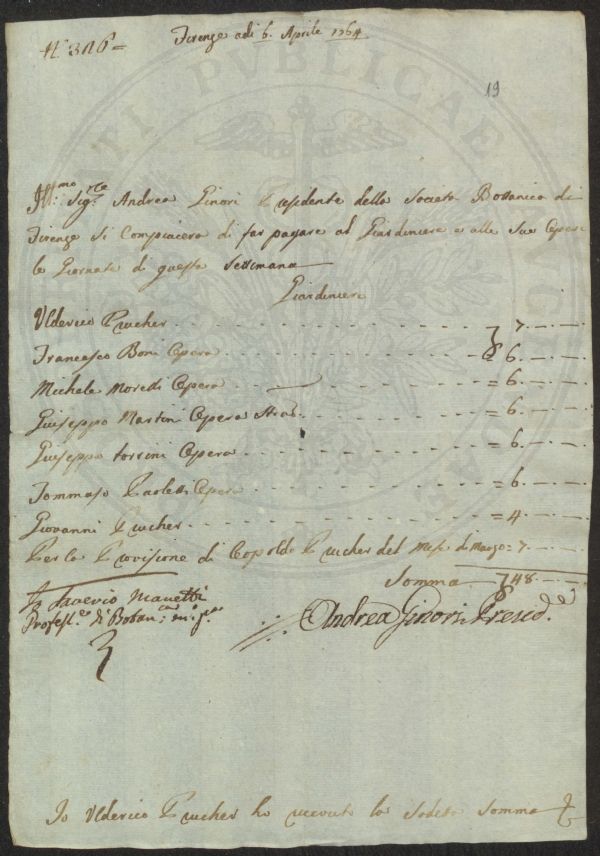 N.° 306=
Firenze adi 6. Aprile 1764
19
Ill:mo Sig.re Andrea Ginori Presidente della Società Bottanica di
Firenze si Compiacerà di far pagare al Giardiniere e alle sue Opere
le Giornate di questa Settimana
Giardiniere
Ulderico Prucher . . . 7.—.—
Francesco Boni Opera . . . = 6.—.—
Michele Moredi Opera . . . = 6.—.—
Giuseppo Martini Opera . . . = 6.—.—
Giuseppo Torrini Opera . . . = 6.—.—
Tommaso Paoletti Opera . . . = 6.—.—
Giovanni Prucher . . . = 4.—.—
Per la Provisione di Leopoldo Prucher del Mese di Marzo = 7.—.—
Somma 48.—.—
Saverio Manetti
Profess.re di Botan:ca
Andrea Ginori Presid.
Io Ulderico Prucher ho ricevuto la sodeta somma